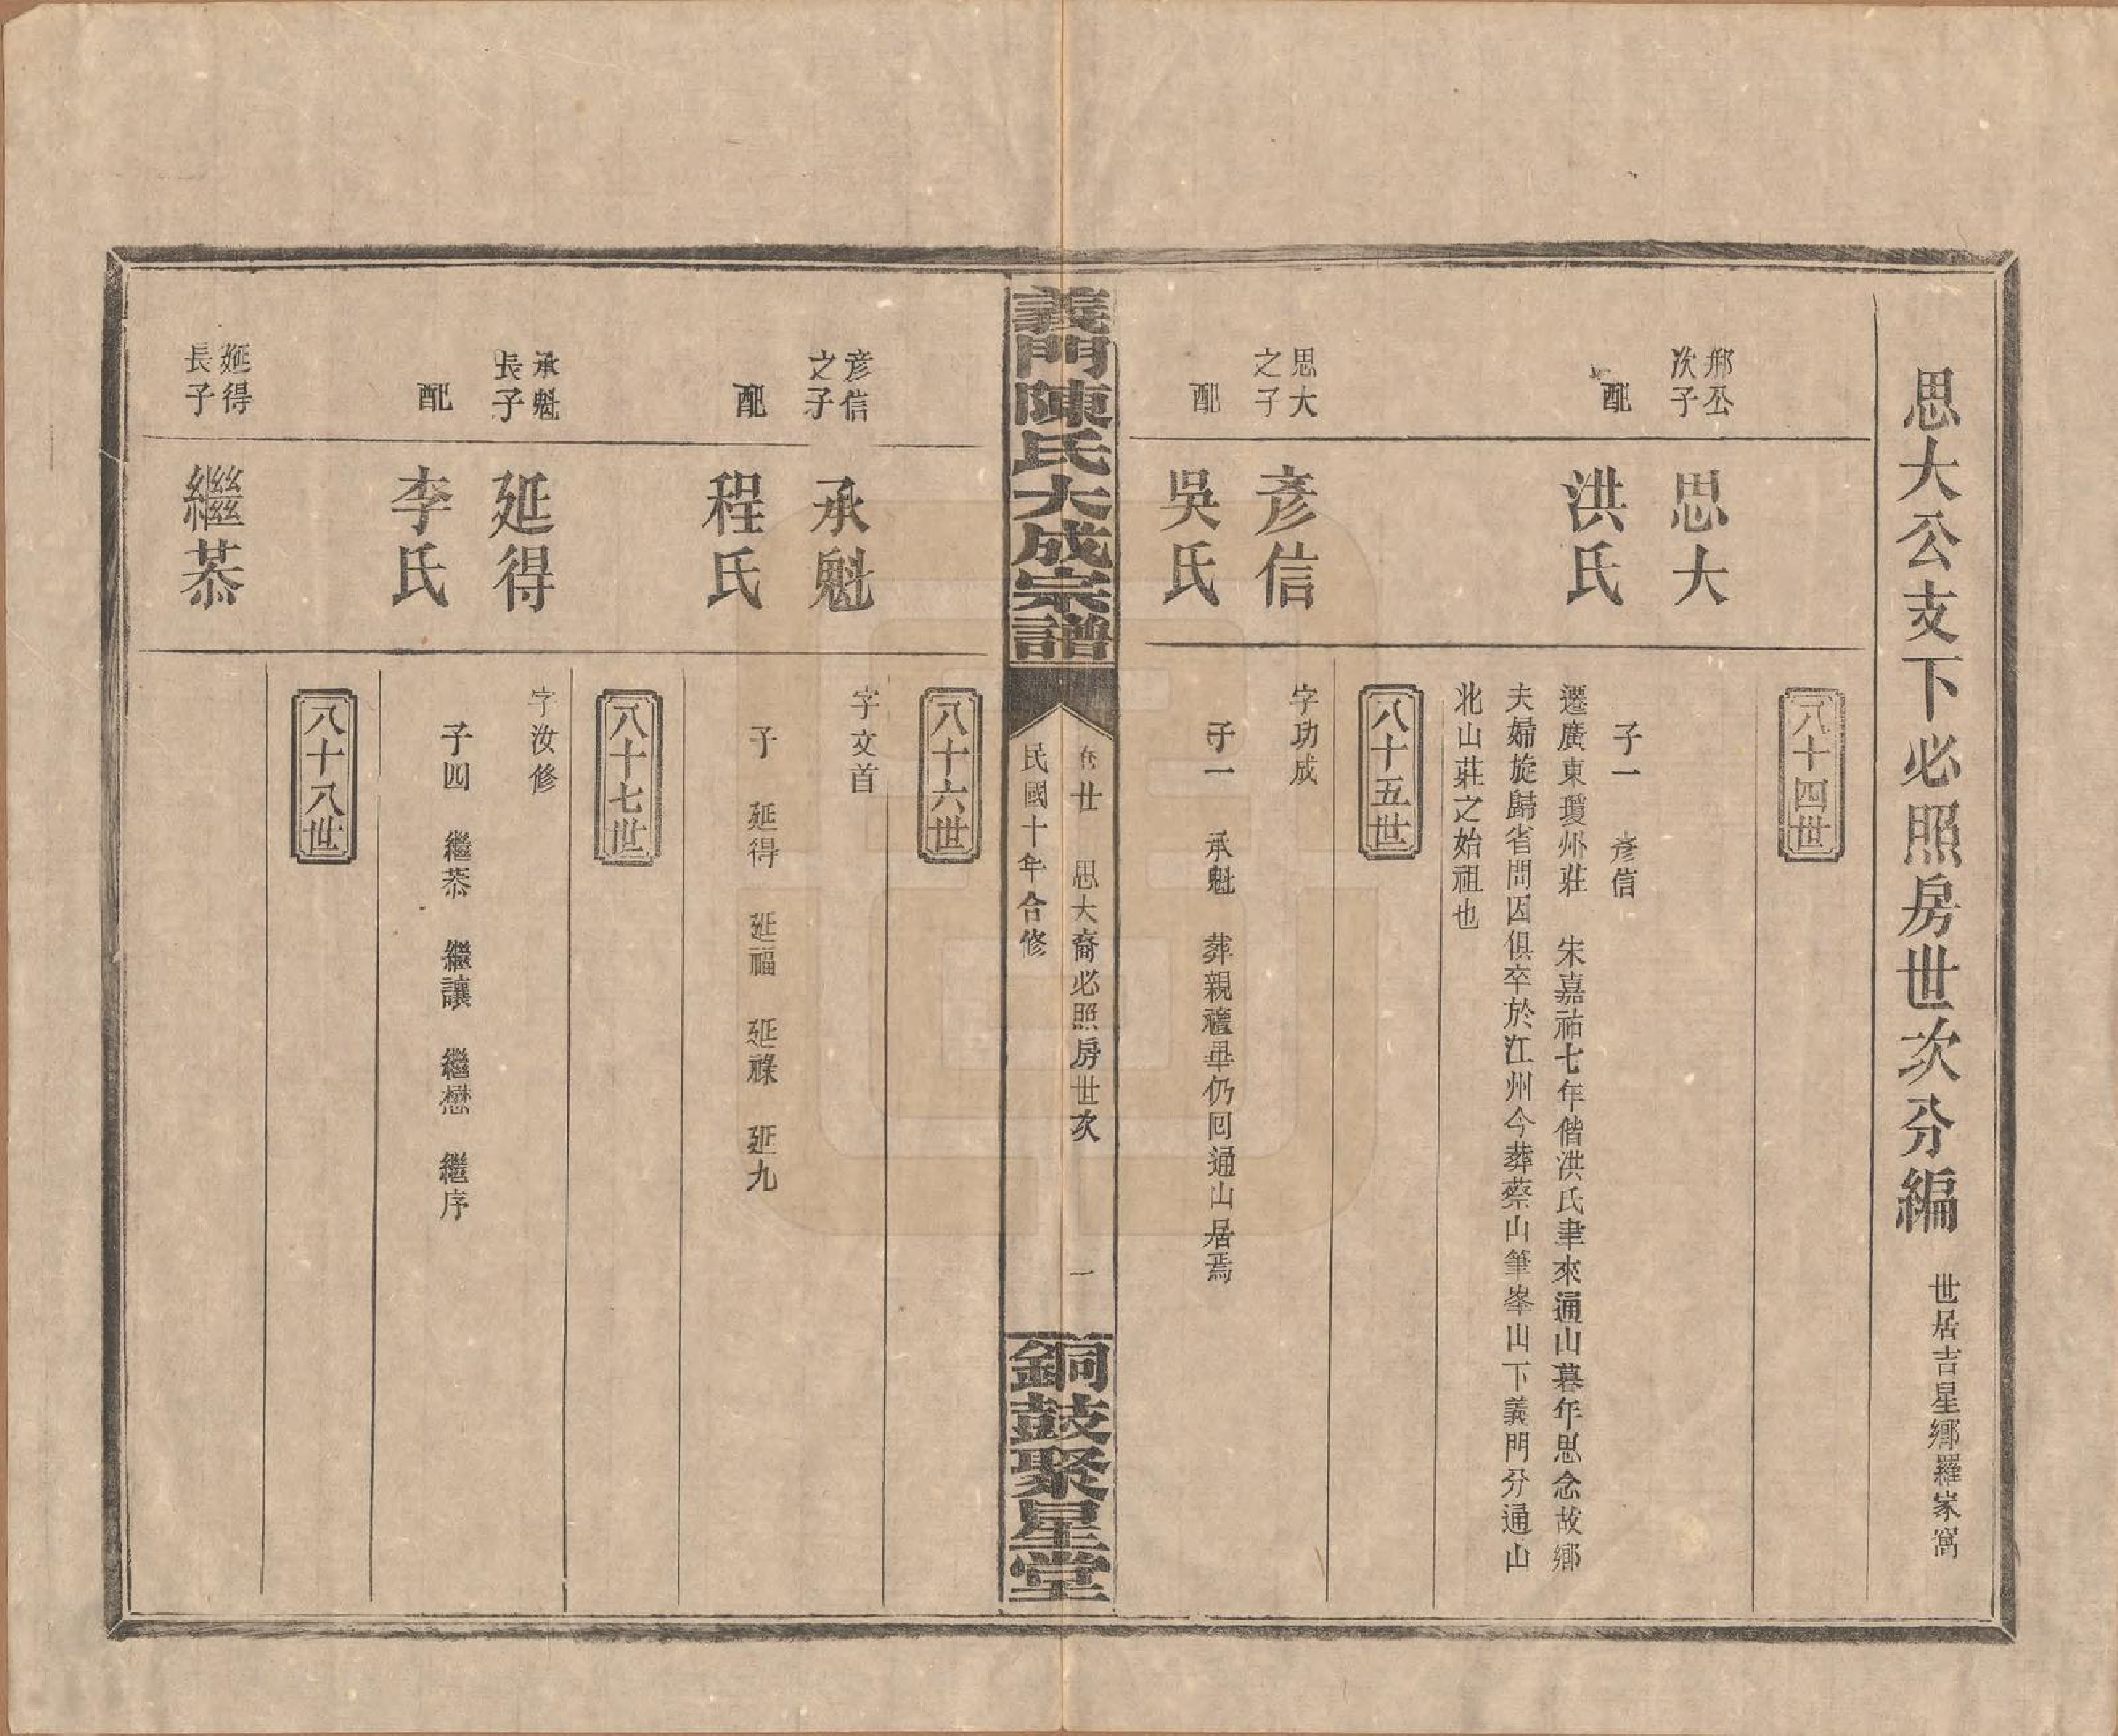 思大公支下必照房世次分編 世居吉星鄉羅家窩
八十四世
郱公次子 思大
子一 彥信
配 洪氏
遷廣東瓊州莊 宋嘉祐七年偕洪氏聿來通山暮年思念故鄉
夫婦旋歸省問因俱卒於江州今葬蔡山筆峯山下義門分通山
北山莊之始祖也
八十五世
思大之子 彥信
字功成
配 吳氏
子一 承魁 葬親禮畢仍囘通山居焉
義門陳氏大成宗譜
卷廿 思大裔必照房世次 一
民國十年合修
銅鼓聚星堂
八十六世
彥信之子 承魁
字文首
配 程氏
子 延得 延福 延祿 延九
八十七世
承魁長子 延得
字汝修
配 李氏
子四 繼恭 繼讓 繼懋 繼序
八十八世
延得長子 繼恭